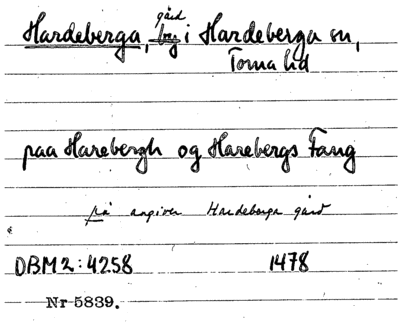 Hardeberga, gård i Hardeberga sn,
Torna hd
paa Harebergh og Harebergs Fang
på angiver Hardeberga gård
DBM 2:4258 1478
Nr 5839.